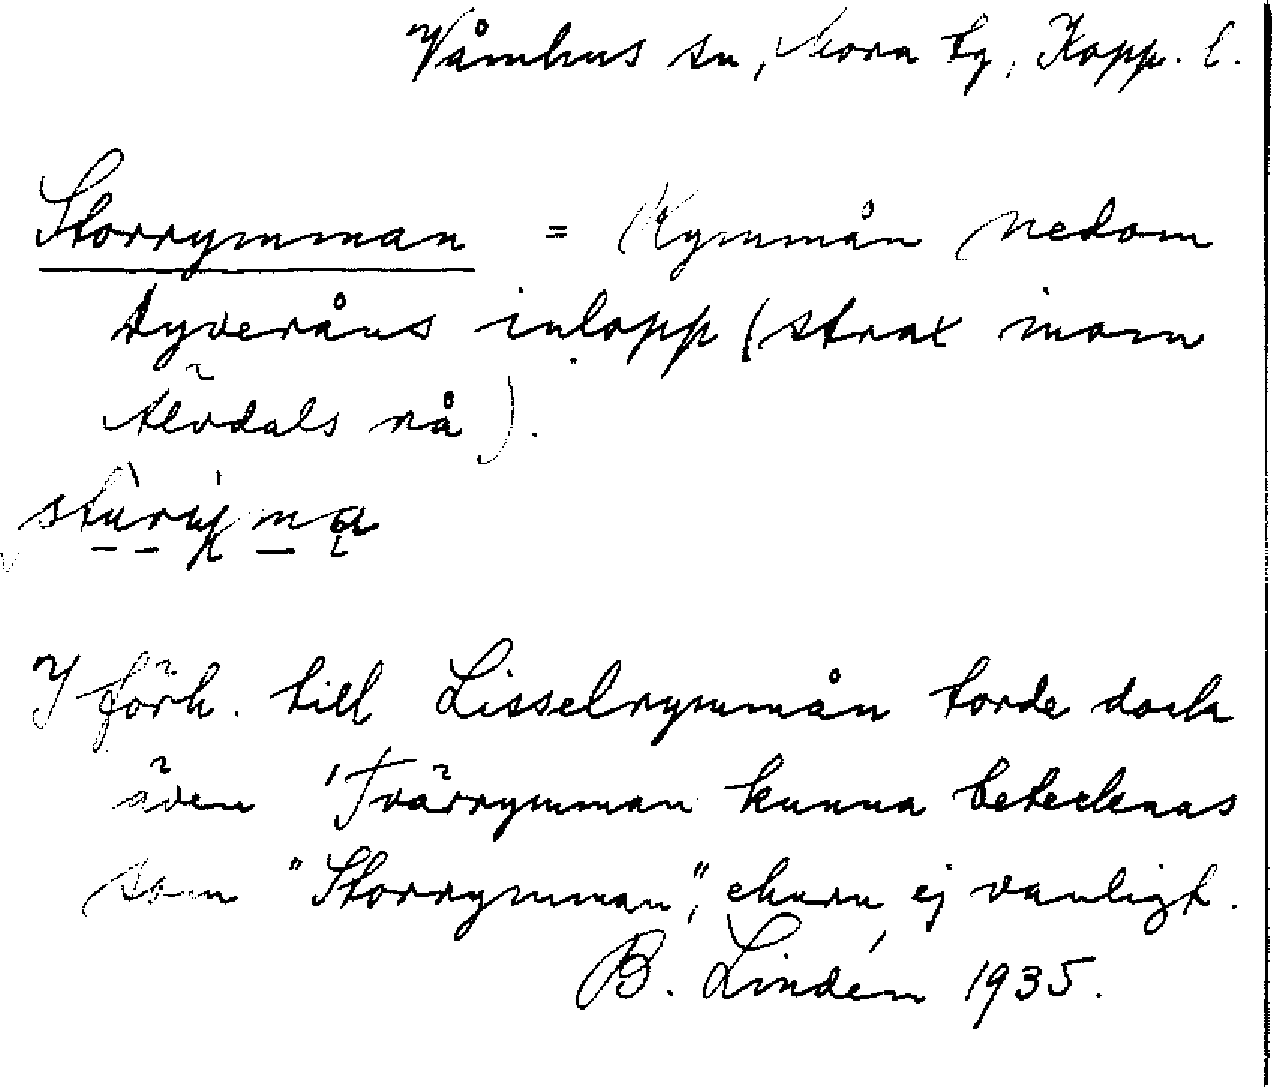 Våmhus sn, Mora tg, Kopp. l.
Storrymman = Rymmån nedom
Dyveråns inlopp (strax inom
Älvdals rå).
I förh. till Lisselrymmån torde dock
även Tvärrymman kunna betecknas
som "Storrymman", ehuru ej vanligt.
B. Lindén 1935.